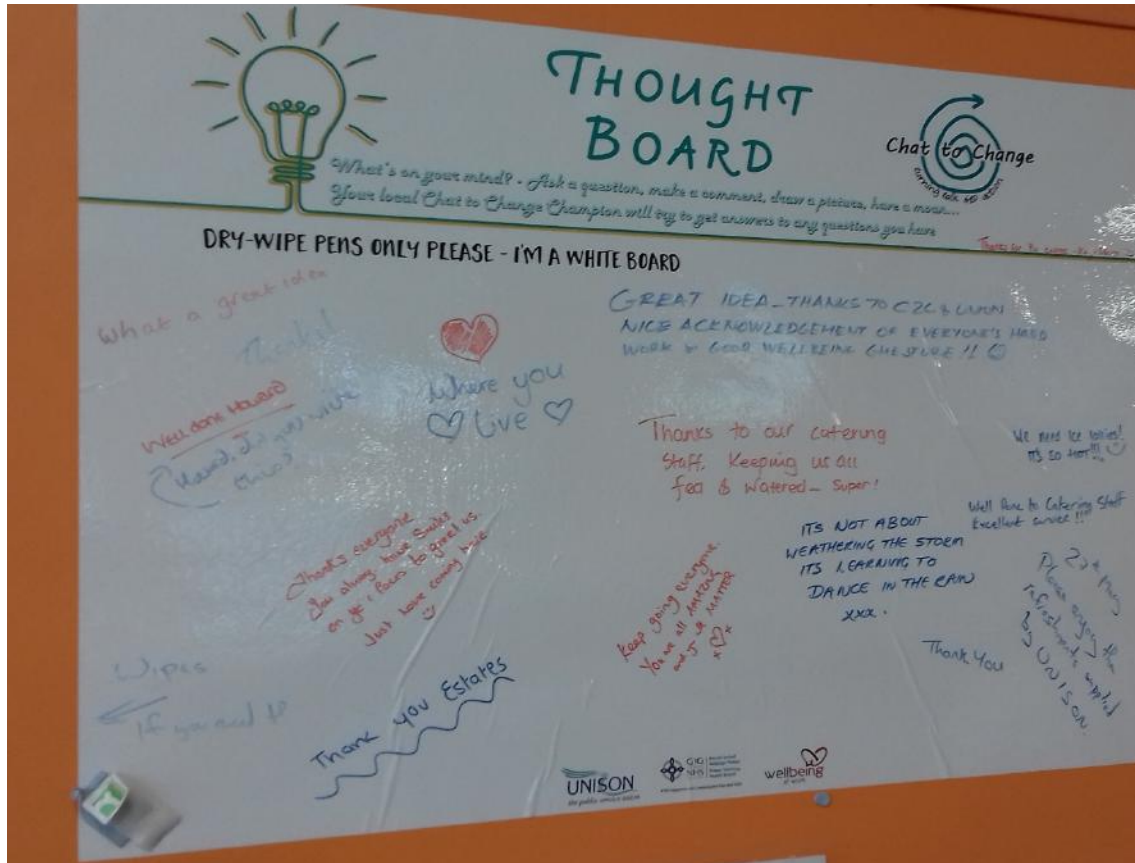 THOUGHT
BOARD
Chat to Change
turning talk into action
What's on your mind? - Ask a question, make a comment, draw a picture, have a moan...
Your local Chat to Change Champion will try to get answers to any questions you have
Thanks for the
DRY-WIPE PENS ONLY PLEASE - I'M A WHITE BOARD
What a great idea
Thanks!
Well done Howard
Howard, Did you write
this?
Where you
Live
GREAT IDEA - THANKS TO C2C &
NICE ACKNOWLEDGEMENT OF EVERYONE'S HARD
WORK & GOOD WELLBEING GHESTURE!!
Thanks to our catering
Staff. Keeping us all
fed & watered - Super!
We need Ice lollies!
It's SO HOT!!!
Well Done to Catering Staff
Excellent service!!!
ITS NOT ABOUT
WEATHERING THE STORM
ITS LEARNING TO
DANCE IN THE RAIN
xxx.
Thanks everyone
You always have Smiles
on faces to greet us.
Just love coming here
Keep going everyone.
You're all AMAZING
and you MATTER
x x
Please enjoy the
refreshments supplied
by UNISON.
Thank You
Wipes
If you need
Thank you Estates
UNISON
the public service union
GIG
NHS
wellbeing
at work